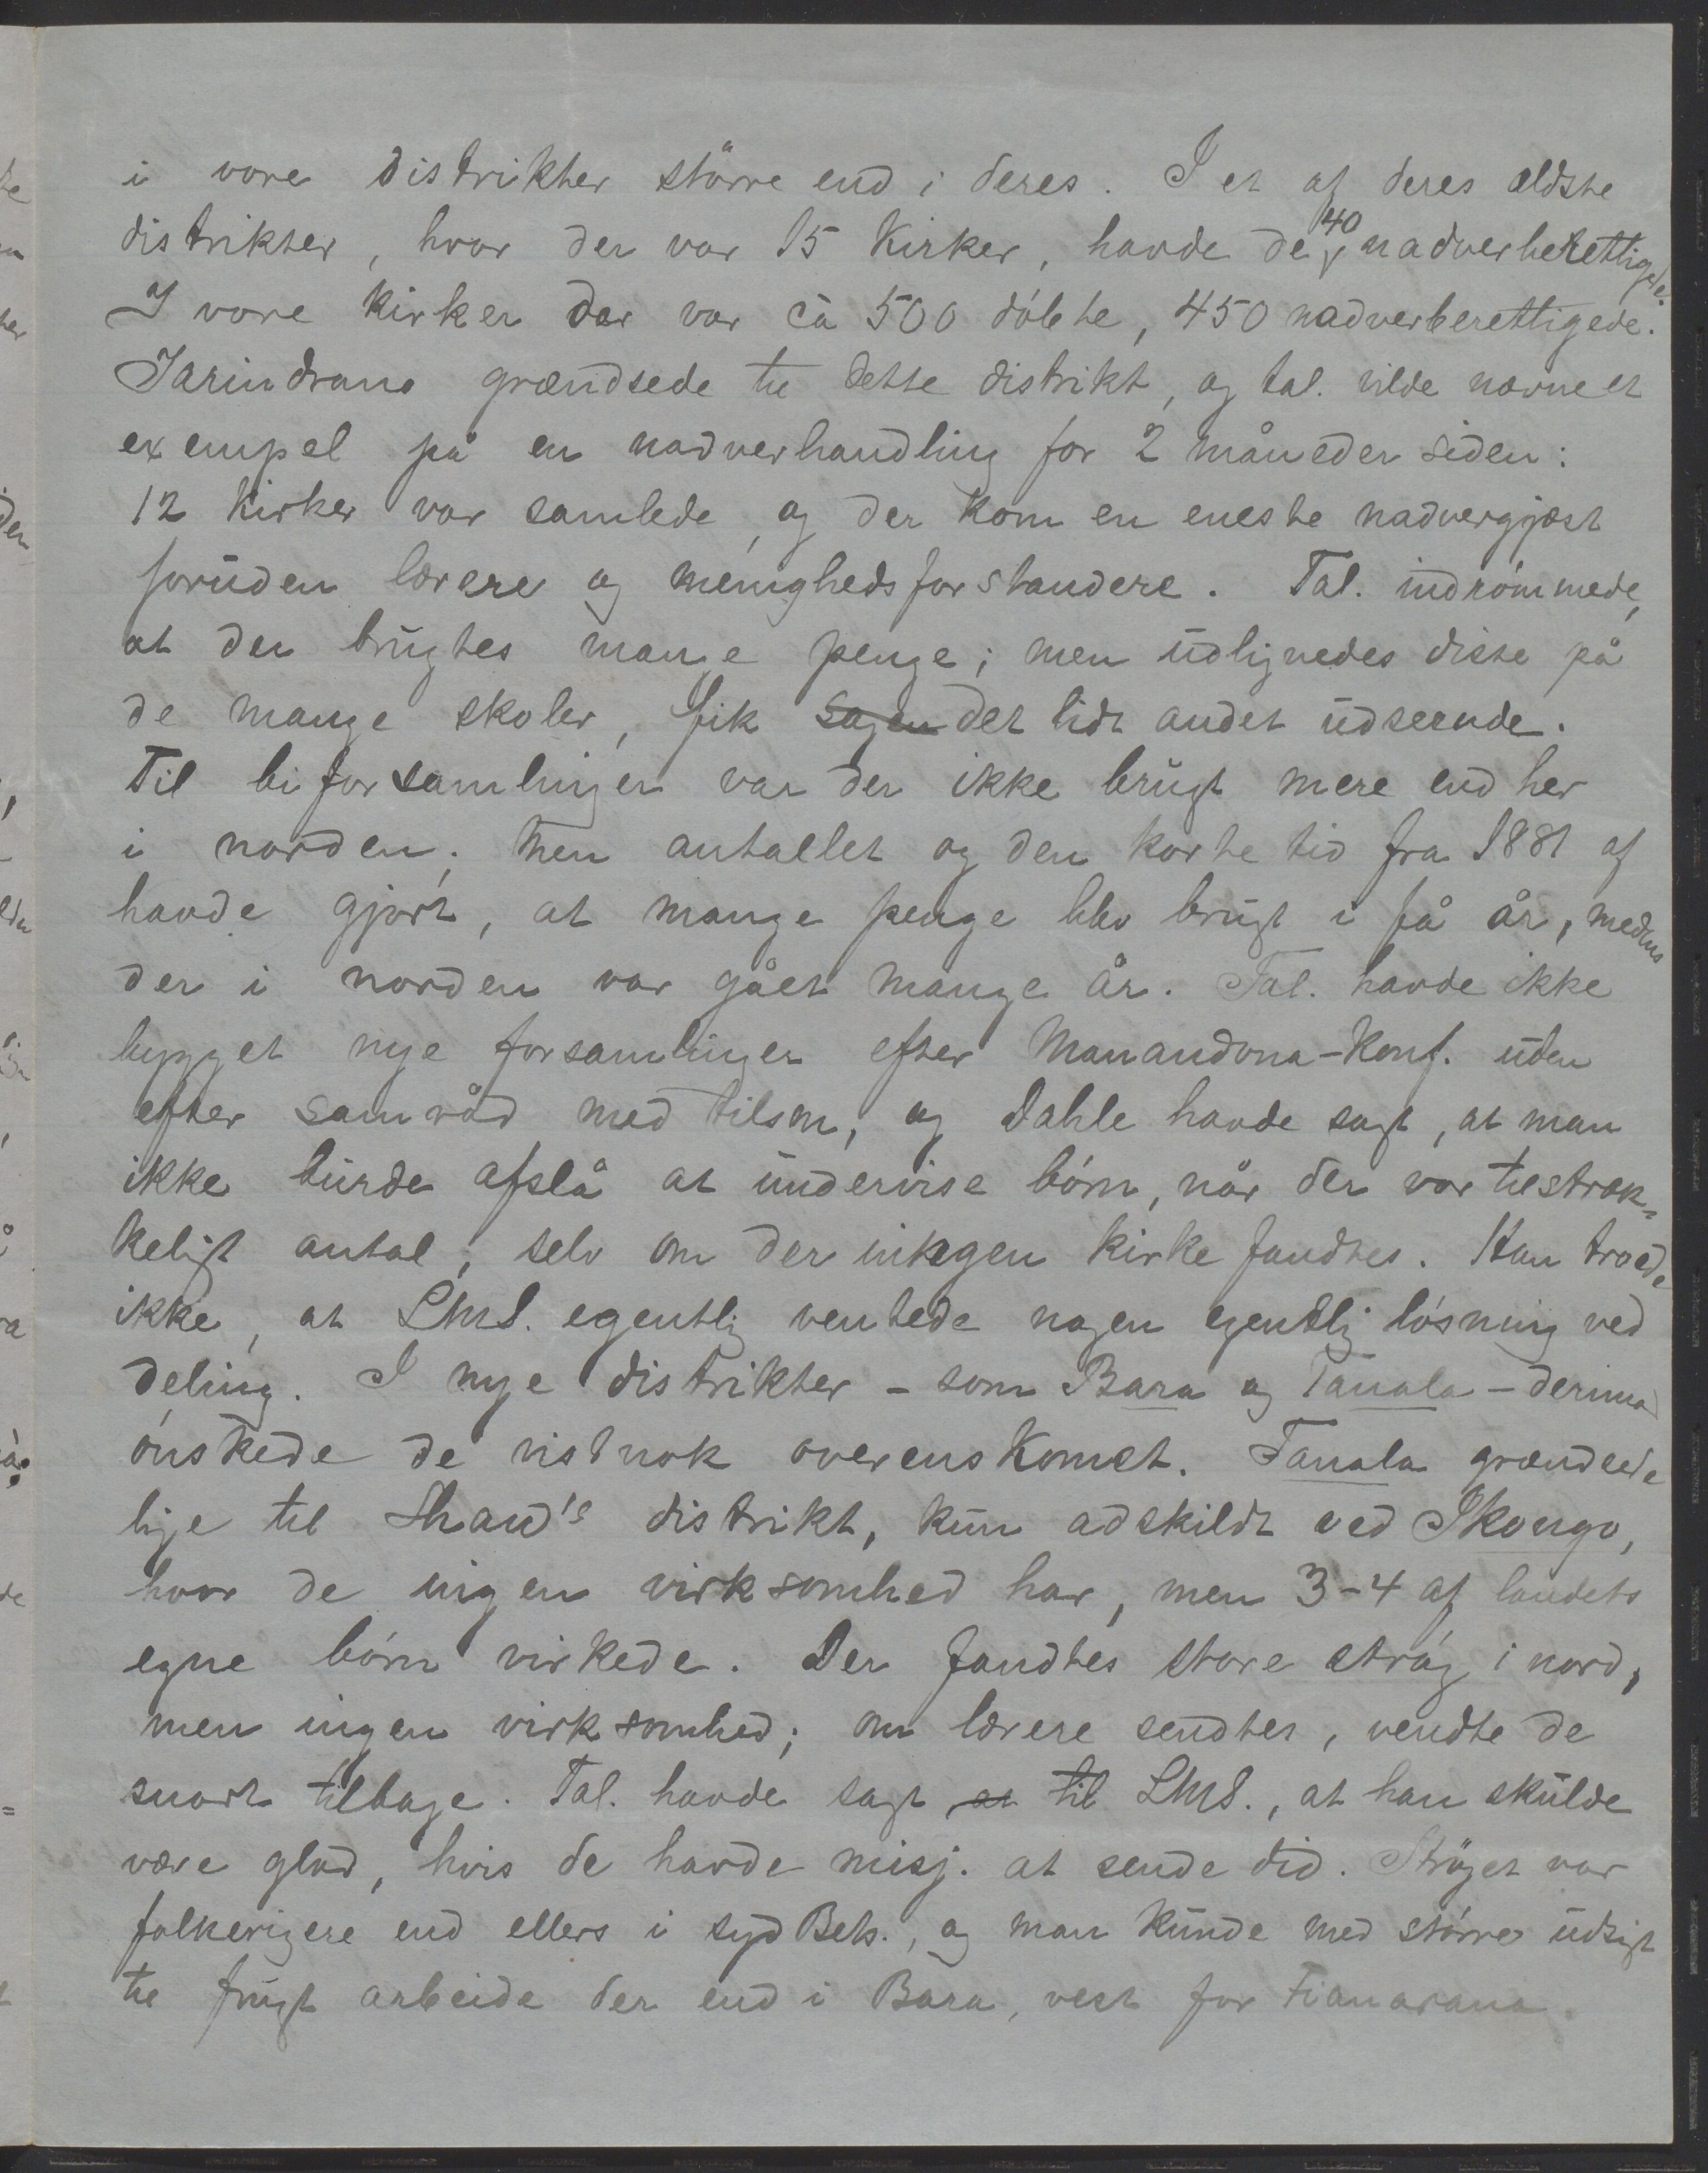 i vore distrikter större end i deres. I et af deres ældste
distrikter, hvor der var 15 kirker, havde de 40 nadverberettigede.
I vore kirker der var cà 500 döbte, 450 nadverberettigede.
Iarindrano grændsede til dette distrikt, og tal. vilde nævne et
exempel på en nadverhandling for 2 måneder siden:
12 kirker var samlede, og der kom en eneste nadvergjæst
foruden lærere og menighedsforstandere. Tal. indrömmede,
at der brugtes mange penge; men udlignedes disse på
de mange skoler, fik sagen det lidt andet udseende.
Til biforsamlinger var der ikke brugt mere end her
i norden; men antallet og den korte tid fra 1881 af
havde gjort, at mange penge blev brugt i få år, medens
der i norden var gået mange år. Tal. havde ikke
bygget nye forsamlinger efter Manandona-Konf. uden
efter samråd med tilsm, og Dahle havde sagt, at man
ikke burde afslå at undervise börn, når der var tilstræk-
keligt antal, selv om der ingen kirke fandtes. Han troede
ikke, at LMS. egentlig ventede nogen egentlig lösning ved
deling. I nye distrikter - som Bara og Tanala - derimod
önskede de vistnok overenskomst. Tanala grændsede
lige til Shaw's distrikt, kun adskildt ved Ikongo,
hvor de ingen virksomhed har, men 3-4 af landets
egne börn virkede. Der fandtes store strög i nord,
men ingen virksomhed; om lærere sendtes, vendte de
snart tilbage. Tal. havde sagt at til LMS., at han skulde
være glad, hvis de havde misj. at sende did. Ströget var
folkerigere end ellers i syd Bets., og man kunde med större udsigt
til frugt arbeide der end i Bara, vest for Fianarana.